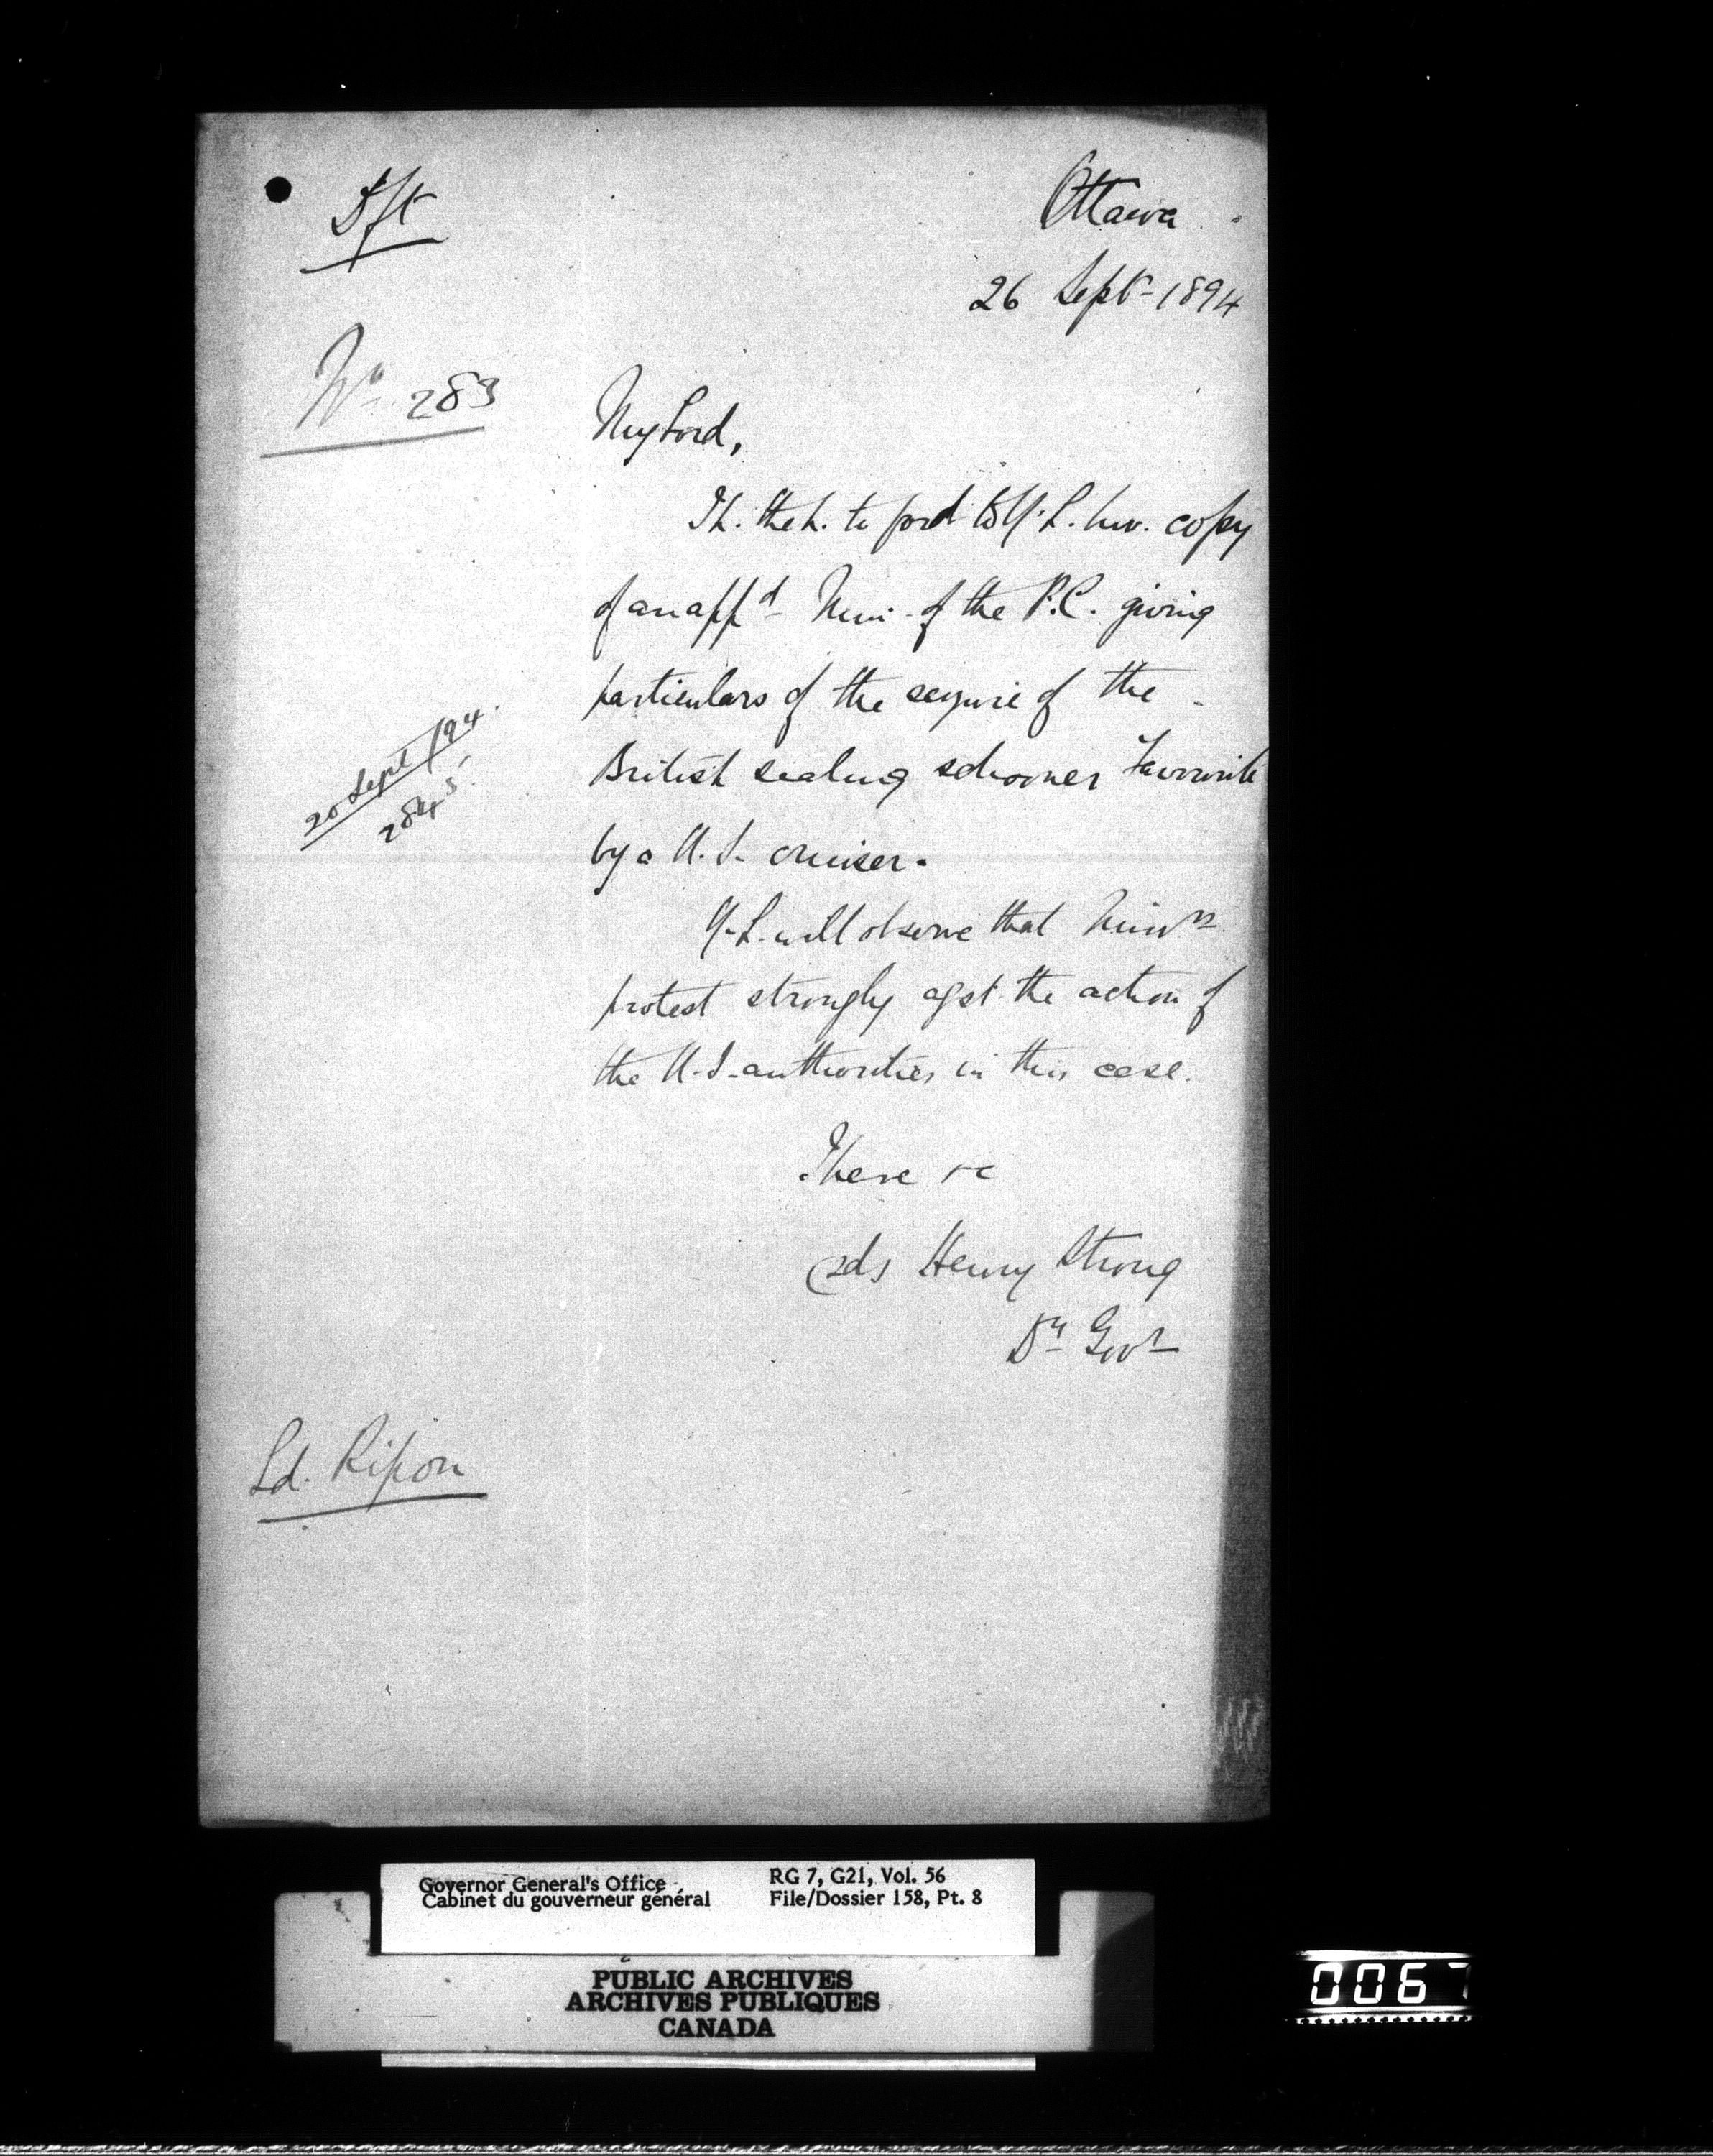 Dft
Ottawa
26 Sept - 1894
No 283
My Lord,
I h. the h. to ford to Y. L. hw. copy
of an appd Min. of the P.C. giving
particulars of the seizure of the
British sealing schooner Favourite
20 Sept /94.
284 5.
by a U.S. cruiser.
Y. L. will observe that Minrs
protest strongly agst the action of
the U.S. authorities in this case.
I have &c
(sd) Henry Strong
Dy Govr
Ld. Ripon
Governor General's Office
Cabinet du gouverneur général
RG 7, G21, Vol. 56
File/Dossier 158, Pt. 8
PUBLIC ARCHIVES
ARCHIVES PUBLIQUES
CANADA
0067